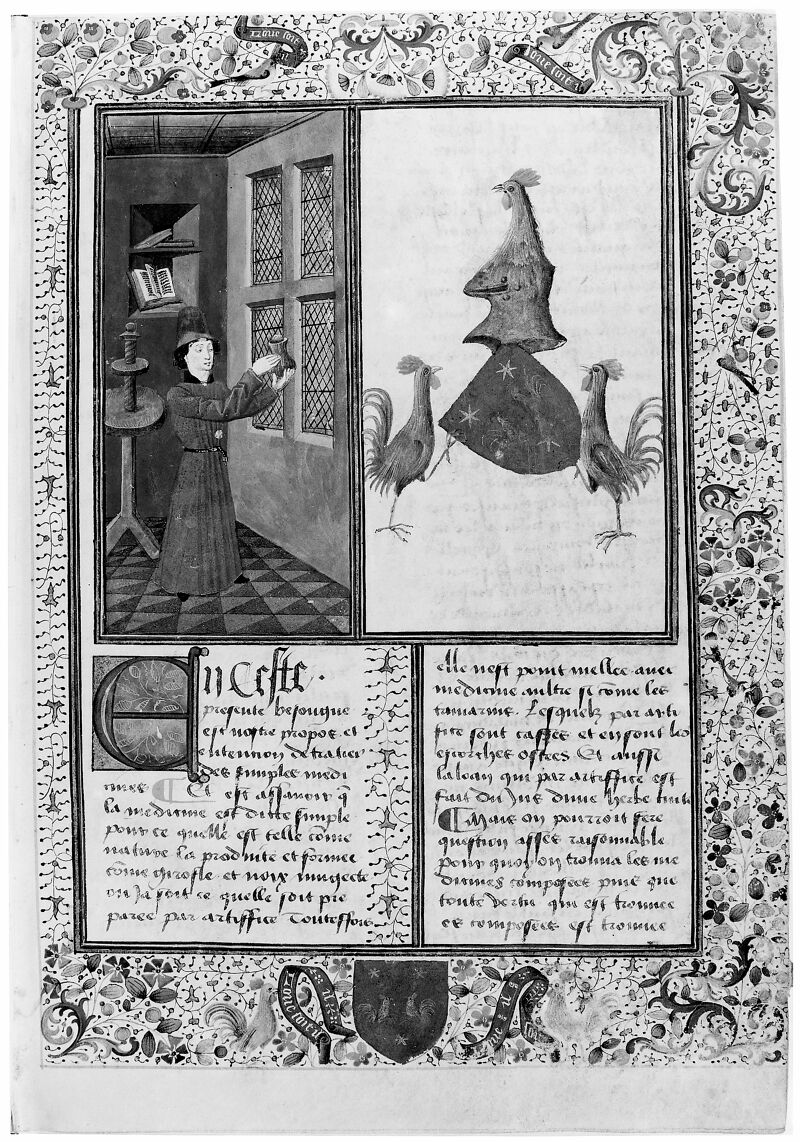 En Ceste
presente besongne
est nostre propos et
entention de traitier
des simples medi
cines Et est assavoir q̄
la medicine est ditte simple
pour ce quelle est telle côme
nature la produite et formee
côme girofle et noix muguete
ou ja soit ce quelle soit pre
paree par artiffice Touteffois
elle nest point mellee avec
medicine aultre si come les
tamarins. Lesquelz par arti
fice sont cassés et en sont les
escorches ostees Et aussi
laloen qui par artiffice est
fait du Jus dune herbe
Mais on pourroit fere
question asses raisonnable
pour quoy on trouva les me
dicines composees puis que
toute vertu qui est trouvee
es composees est trouvee